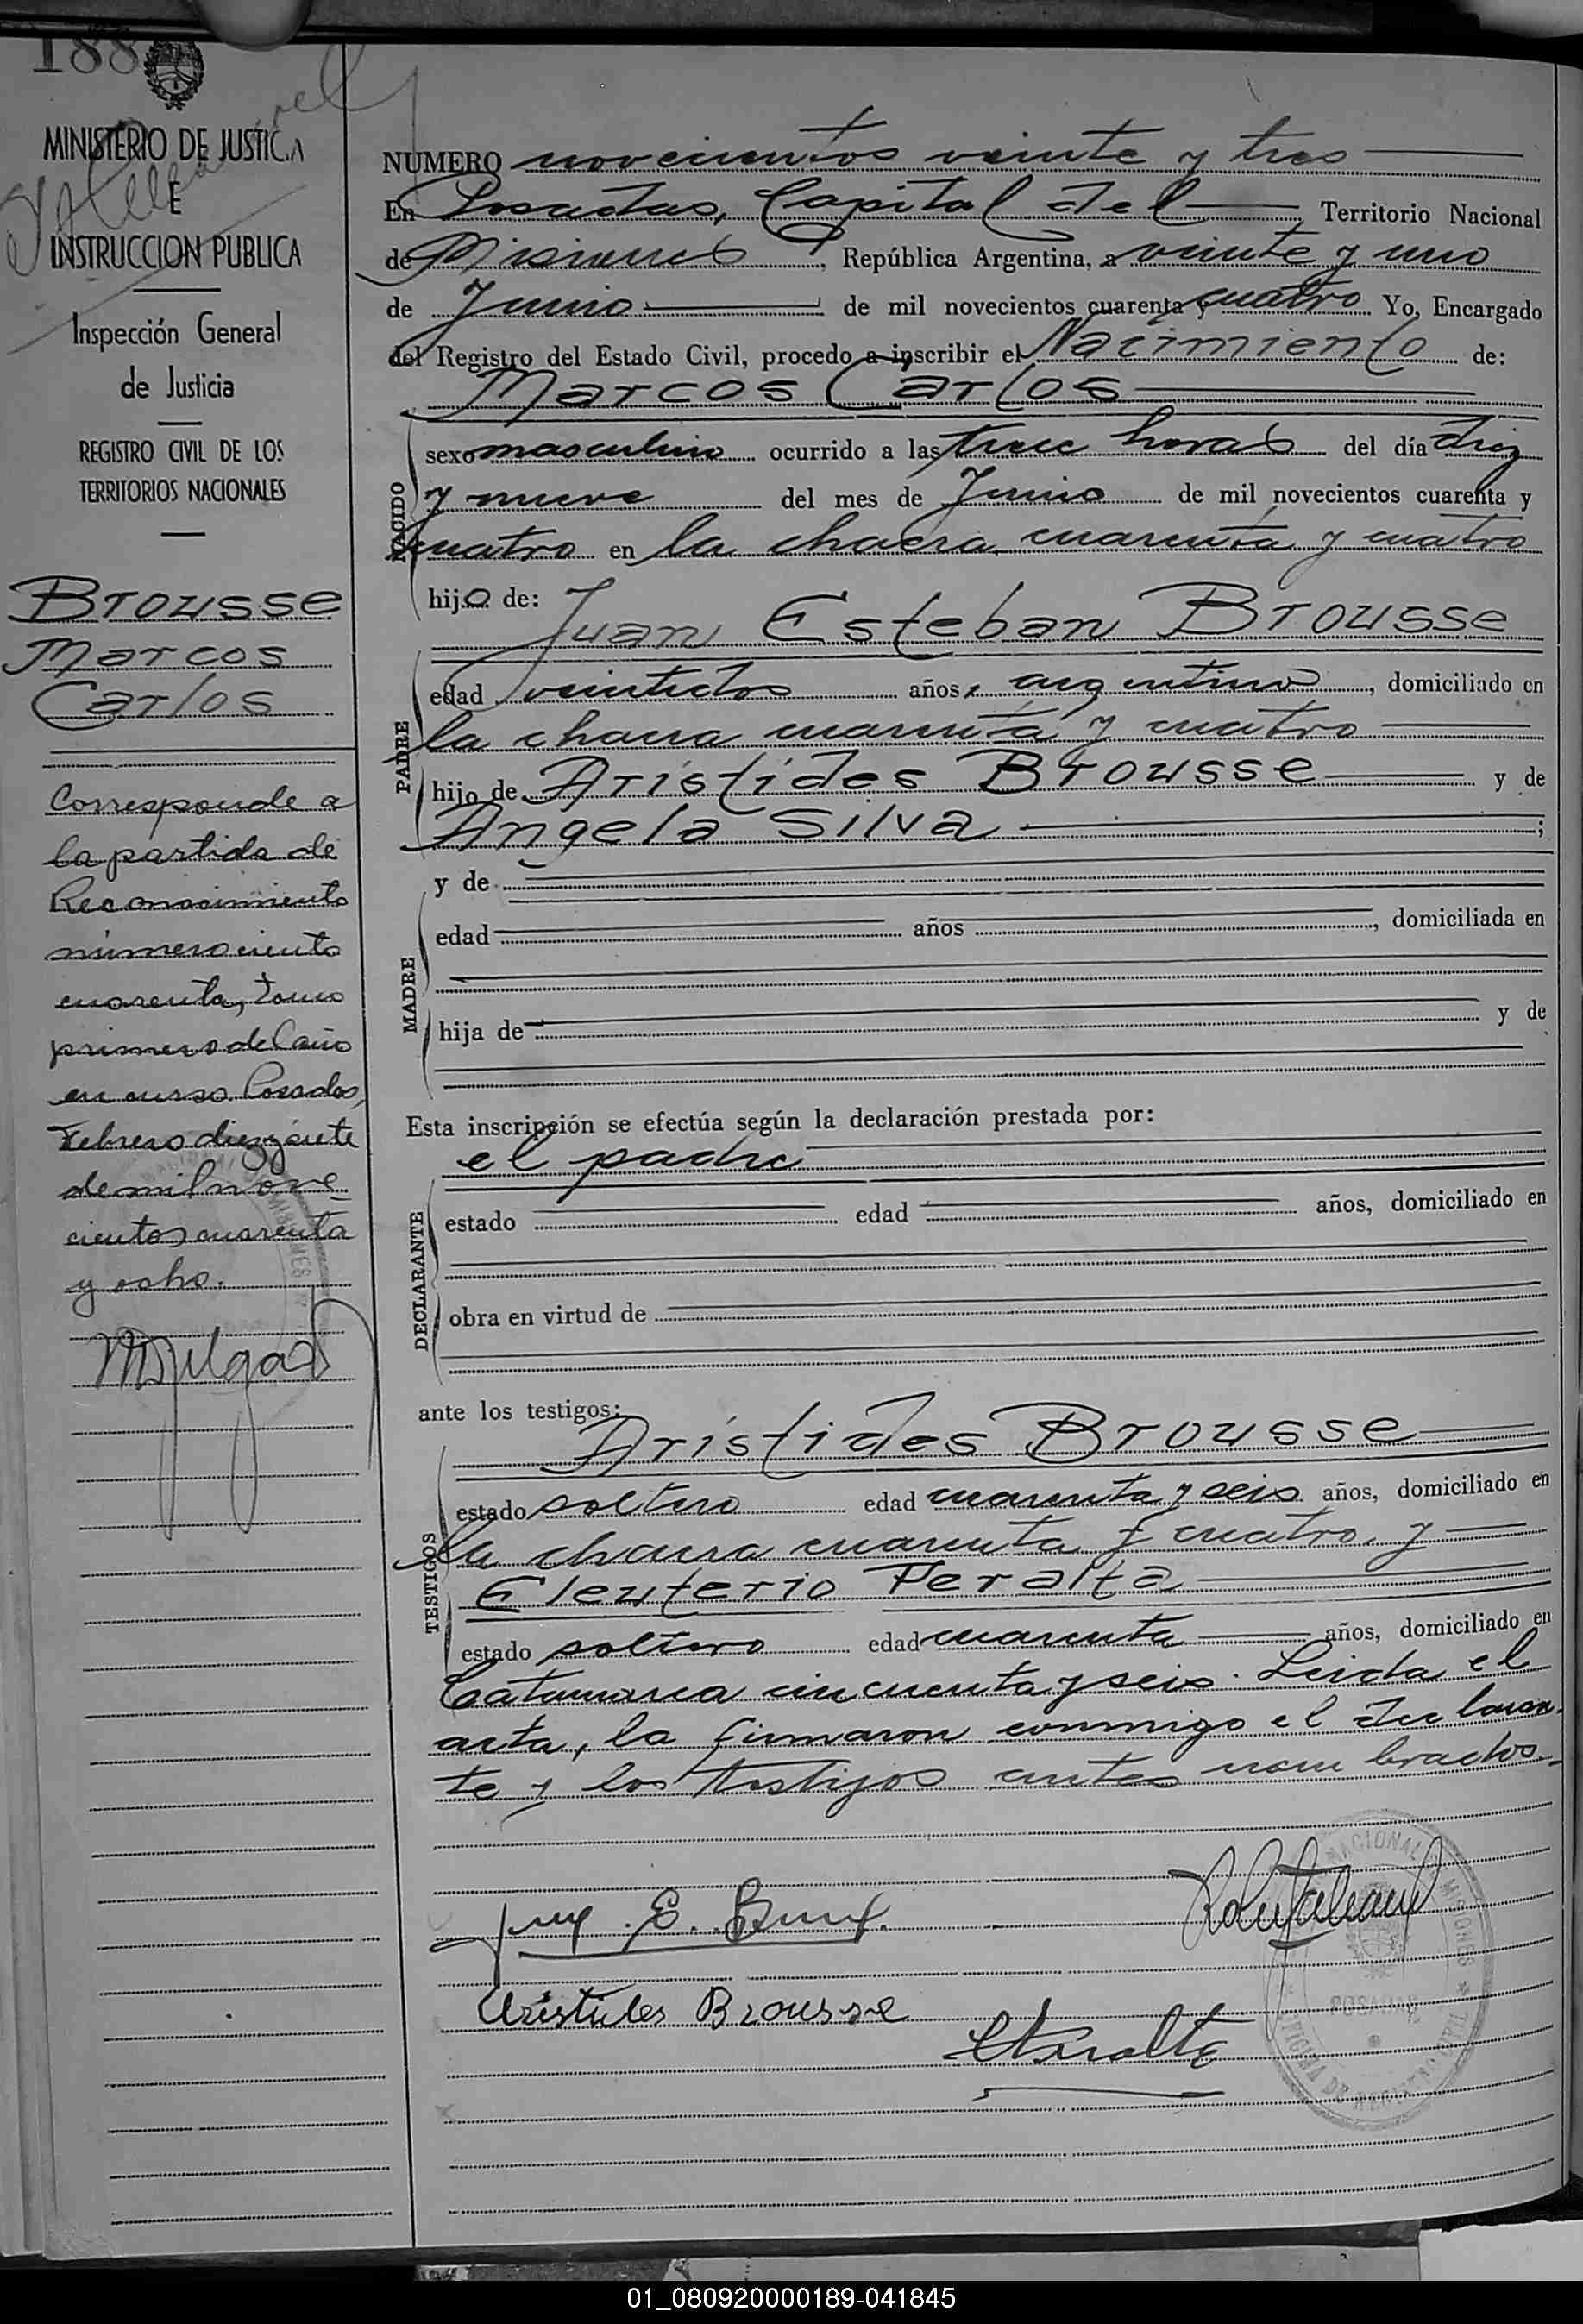 188
MINISTERIO DE JUSTICIA
E
INSTRUCCION PUBLICA
Inspección General
de Justicia
REGISTRO CIVIL DE LOS
TERRITORIOS NACIONALES
Brousse
Marcos
Carlos
Corresponde a
la partida de
Reconocimiento
número ciento
cuarenta, tomo
primero del año
en curso. Posadas,
Febrero diez y siete
de mil nove
cientos cuarenta
y ocho.
NUMERO novecientos veinte y tres
En Posadas, Capital del Territorio Nacional
de Misiones, República Argentina, a veinte y uno
de Junio de mil novecientos cuarenta y cuatro Yo, Encargado
del Registro del Estado Civil, procedo a inscribir el Nacimiento de:
Marcos Carlos
NACIDO
sexo masculino ocurrido a las trece horas del día diez
y nueve del mes de Junio de mil novecientos cuarenta y
cuatro en la chacra cuarenta y cuatro
hijo de:
Juan Esteban Brousse
PADRE
edad veintidos años, argentino, domiciliado en
la chacra cuarenta y cuatro
hijo de Arístides Brousse y de
Angela Silva ;
y de
MADRE
edad años , domiciliada en
hija de y de
Esta inscripción se efectúa según la declaración prestada por:
el padre
DECLARANTE
estado edad años, domiciliado en
obra en virtud de
ante los testigos:
Arístides Brousse
TESTIGOS
estado soltero edad cuarenta y seis años, domiciliado en
la chacra cuarenta y cuatro, y
Eleuterio Peralta
estado soltero edad cuarenta años, domiciliado en
Catamarca cincuenta y seis. Leida el
acta, la firmaron conmigo el declaran-
te y los testigos antes nombrados.
Arístides Brousse
EPeralta
NACIONAL MISIONES
POSADAS
OFICINA DE REGISTRO CIVIL
01_080920000189-041845